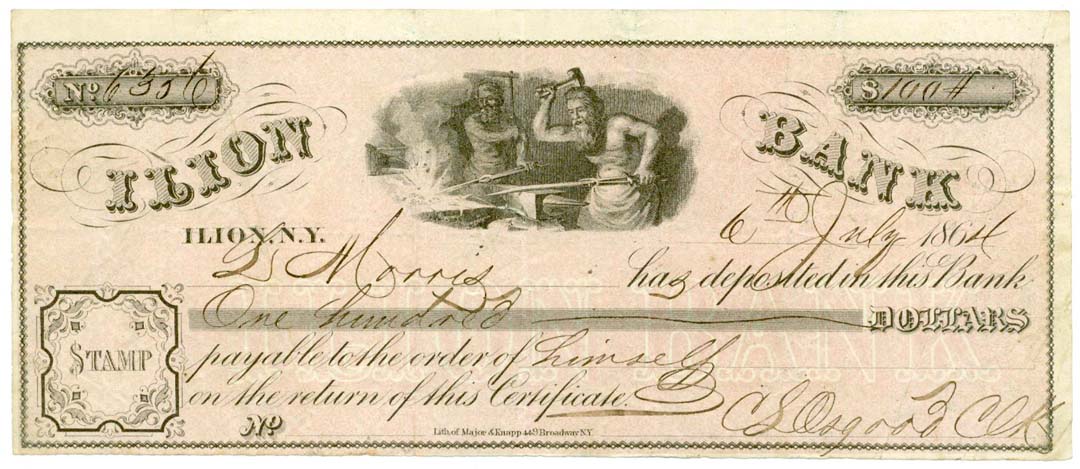 No 6336 $ 100#
ILION BANK
ILION, N.Y. 6th July 1864
L Morris has deposited in this Bank
One hundred DOLLARS
STAMP
payable to the order of himself
on the return of this Certificate.
No C S Osgood Clk
Lith of Major & Knapp 449 Broadway N.Y.
ILION BANK